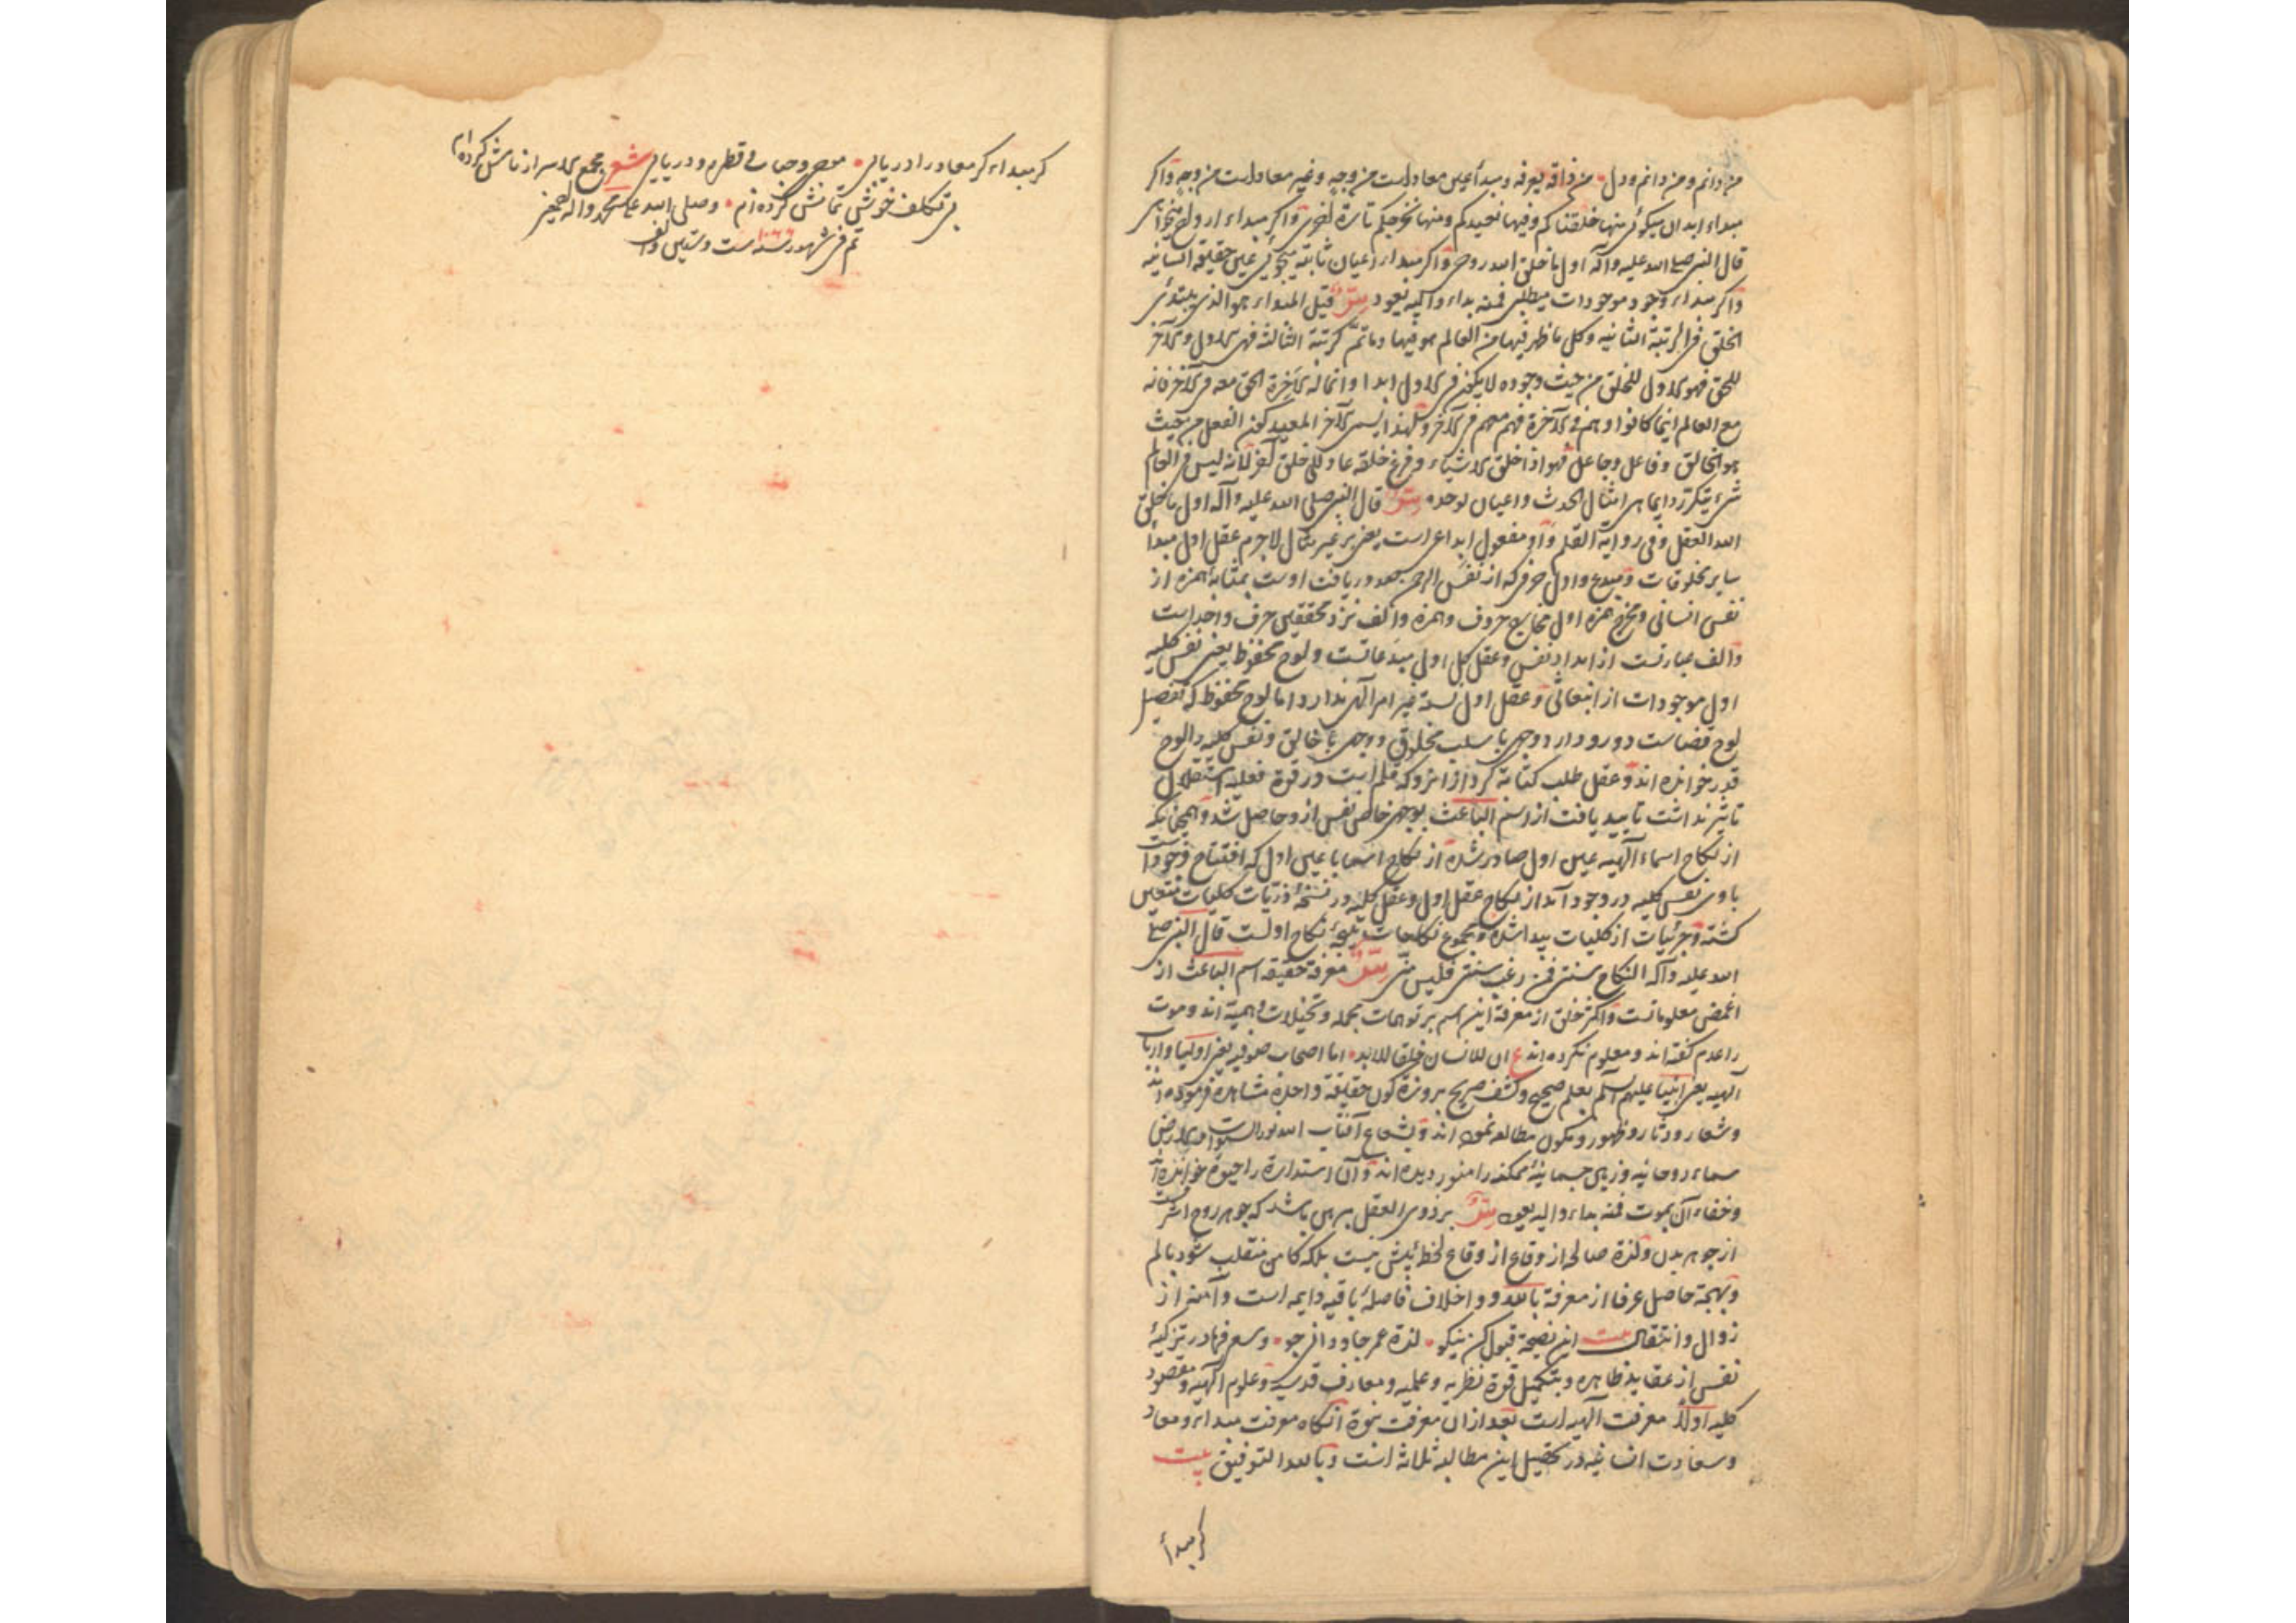 من دانم و من دانم و دل من ذاقه یعرفه و مبدأ عین معاد است من وجه و غیر معاد است من وجه و اکر
مبداء ابدان میکوئی منها خلقناکم و فیها نعیدکم و منها نخرجکم تارة اخری و اکر مبداء ارواح میخواهی
قال النبی صلی الله علیه و آله اول ما خلق الله روحی و اکر مبداء اعیان ثابته میجوئی عین حقیقة انسانیه
و اکر مبداء وجود موجودات میطلبی فمنه بداء و الیه یعود قیل المبداء هو الذی یبتدئ
الخلق فی المرتبة الثانیه و کل ما ظهر فیها من العالم هو فیها و ما ثم مرتبة الثالثه فهی الاول و الآخر
للحق فهو الاول للخلق من حیث وجوده لا یکون فی الاول ابدا و انما له الآخرة الحق معه فی الآخر فانه
مع العالم اینما کانوا و هم فی الآخرة فهم معهم فی الآخر و لهذا لیس الآخر المعید کون الفعل من حیث
هو الخالق و فاعل و جاعل فهو اذا خلق الاشیاء و فرغ خلقه عاد للخلق آخر لانه لیس فی العالم
شیء یتکرر دایما هی امثال الحدث و اعیان توحده قال النبی صلی الله علیه و آله اول ما خلق
الله العقل و فی روایة القلم و او مفعول ابداعی است یعنی بر غیر مثال لاجرم عقل اول مبدأ
سایر مخلوقات و مبدع و اول حرفی که از نفس الرحمن صدور یافت اوست بمثابه همزه از
نفس انسانی و مخرج همزه اول مخارج حروف و همزه و الف نزد محققین حرف واحد است
و الف عبارتست از امداد نفس و عقل کل اول مبدعاتست و لوح محفوظ یعنی نفس کلیه
اول موجودات از انبعاثی و عقل اول غیر امر الهی ندارد اما لوح محفوظ که تفصیل
لوح قضاست دو رو دارد وجهی با سلب مخلوق و وجهی با خالق و نفس کلیه را لوح
قدر خوانده اند و عقل طلب کتابة کرد از انرو که قلم است و در قوة فعلیه استقلال
تاثیر نداشت تایید یافت از اسم الباعث بوجهی خاص نفس ازو حاصل شد و همچنانکه
از نکاح اسماء الهیه عین اول صادر شده از نکاح اسما با عین اول که افتتاح وجود است
باوی نفس کلیه در وجود آمد از نکاح عقل اول و عقل کلیه در نسخهٔ ذریات کلیات متعین
کشته و جزئیات از کلیات پیدا شده و مجموع نکاحات نتیجهٔ نکاح اولست قال النبی صلی
الله علیه و آله النکاح سنتی فمن رغب سنتی فلیس منی معرفة حقیقة اسم الباعث از
اغمض معلوماتست و اکثر خلق از معرفة این اسم بر توهمات مجمله و تخیلات وهمیه اند و موت
را عدم گفته اند و معلوم نکرده اند ع ان للانسان خلقا للابد اما اصحاب صوفیه یعنی اولیا و ارباب
الهیه یعنی انبیا علیهم السلام بعلم صحیح و کشف صریح کون حقیقة واحده مشاهده فرموده اند
و شعار و دثار و ظهور و مکون مطالعه نموده اند و بشعاع آفتاب الله نور السموات و الارض
سماء روحانیه و زمین جسمانیهٔ ممکنه را منور دیده اند و آن استدارة را حیوة خوانده اند
و خفاء آن بموت فمنه بداء و الیه یعود بر ذوی العقل مبرهن باشد که جوهر روح اشرفست
از جوهر بدن و لذة صالح از وقاع از وقاع لحظهٔ بیش نیست بلکه کاهی منقلب شود بالم
و بهجة حاصل عرفا از معرفة بالله و و اخلاق فاضلهٔ باقیه دایمه است و آمن از
زوال و انتقال بیت این نصیحة قبول کن نیکو لذة عمر جاودانی جو و سعی فرما در تزکیهٔ
نفس از عقاید ظاهره و بتکمیل قوة نظریه و عملیه و معارف قدسیه و علوم الهیه و مقصود
کلیه اولا معرفت الهیه است بعد ازان معرفت نبوة آنکاه معرفت مبداء و معاد
و سعادت انسانیه در تحصیل این مطالب ثلاثه است و بالله التوفیق بیت
کر مبدأ
کر مبداء کر معاد را دریابی موج و حباب و قطره و دریایی شعر مجمع الاسرار نامش کرده ام
بی تکلف خوشی تمامش کرده ام و صلی الله علی محمد و اله اجمعین
تم فی شهور سنه ۱۰۶۶ ست و ستین و الف